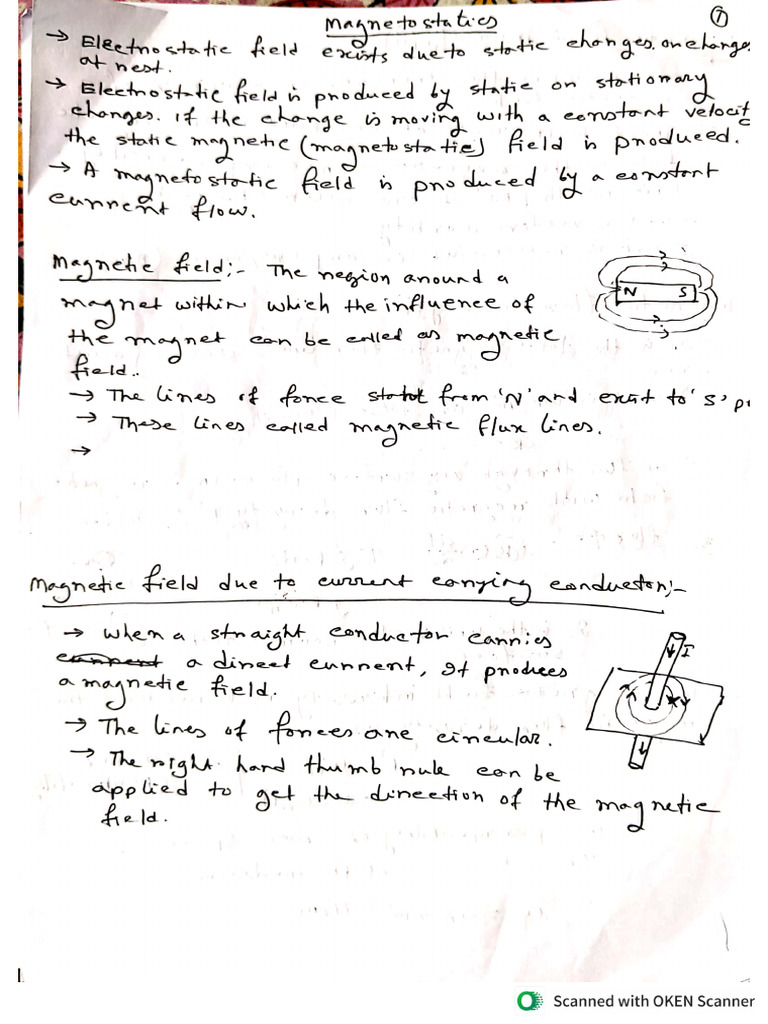 Magnetostatics
①
→ Electrostatic field exists due to static charges. or charge
at rest.
→ Electrostatic field is produced by static or stationary
charges. If the charge is moving with a constant velocit
the static magnetic (magnetostatic) field is produced.
→ A magnetostatic field is produced by a constant
current flow.
Magnetic field:- The region around a
magnet within which the influence of
the magnet can be called as magnetic
field.
N S
→ The lines of force start from 'N' and exist to 'S' p
→ These lines called magnetic flux lines.
→
Magnetic field due to current carrying conductor:-
→ When a straight conductor carries
current a direct current, It produces
a magnetic field.
I
→ The lines of forces are circular.
→ The right hand thumb rule can be
applied to get the direction of the magnetic
field.
Scanned with OKEN Scanner